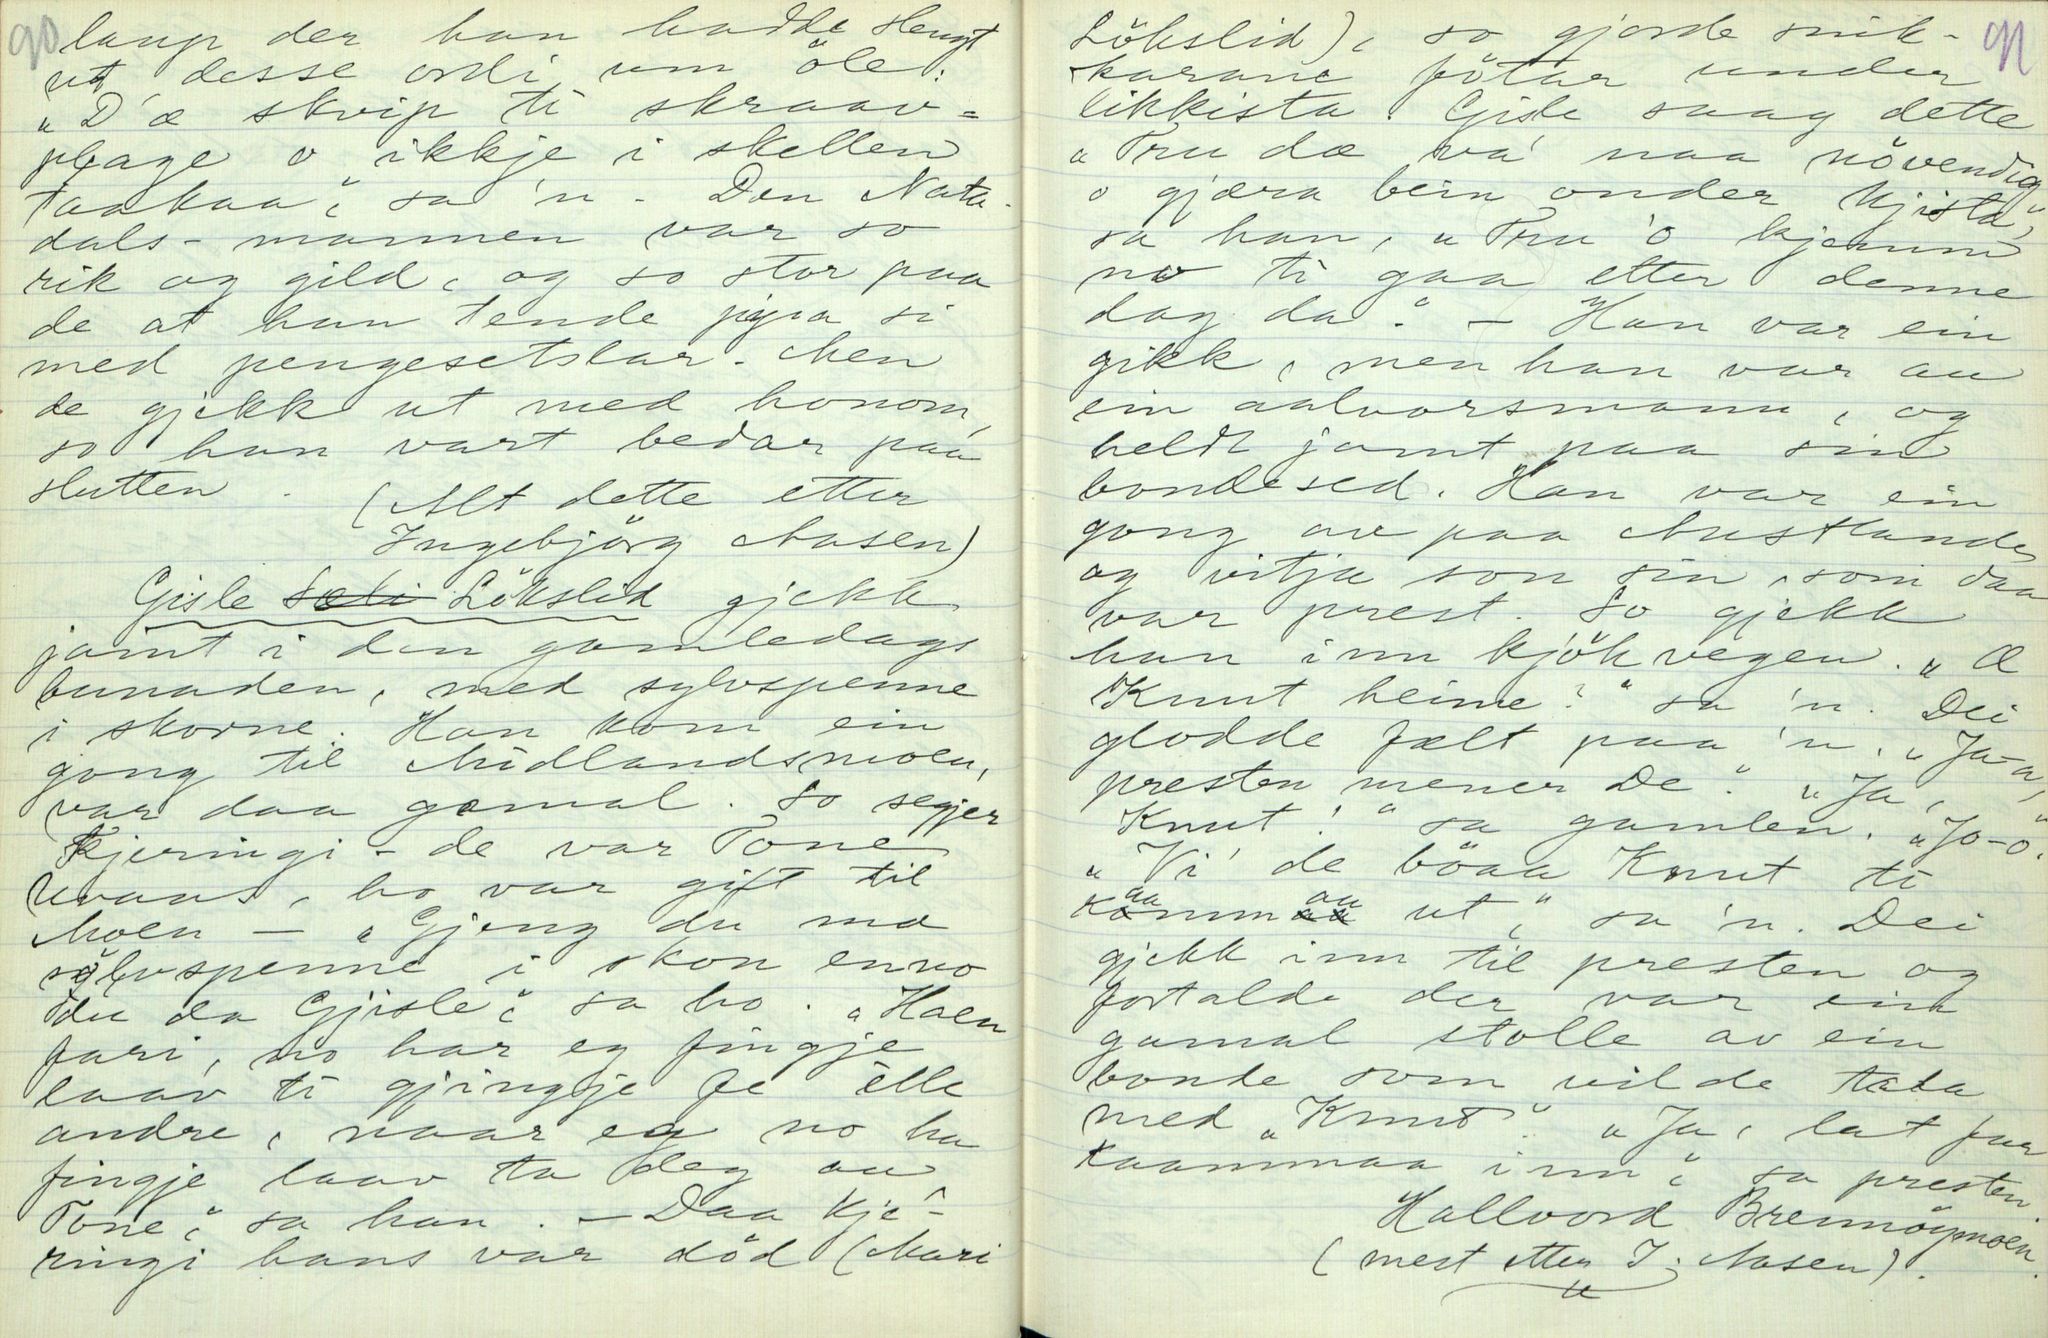 90
laup der han hadde slengt
ut desse ordi um öle:
„D'æ skvip ti skraav-
plage o ikkje i skellen
taakaa", sa 'n - Den Nata-
dals-mannen var so
rik og gild, og so stor paa
de at han tende pipa si
med pengesetslar. Men
de gjekk ut med honom,
so han vart bedar paa
slutten.
(Alt dette etter
Ingebjörg Aasen)
Gisle Lökslid gjekk
jamt i den gamledags
bunaden, med sylvspenne
i skorne. Han kom ein
gong til Midlandsmoen,
var daa gamal. So segjer
kjeringi - de var Tone
Uvaas, ho var gift til
Moen - „Gjeng du mæ
sölvspenne i skon enno
du da Gjisle", sa ho. „Haen
fari, no har eg fingje
laav ti gjingje fe ille
andre, naar eg no ha
fingje laav ta deg au
Tone", sa han. - Daa kje-
ringi hans var död (Mari
91
Lökslid), so gjorde snik-
karane fötar under
likkista. Gisle saag dette
„Tru dæ va' naa növendig
o gjæra bein onder kjista",
sa han, „Tru 'o kjemm
no ti gaa etter denne
dag da". - Han var ein
gikk, men han var au
ein aalvorsmann, og
heldt jamt paa sin
bondesed. Han var ein
gong av paa Austlandes
og vitja son sin, som daa
var prest. So gjekk
han inn kjökvegen. „Æ
Knut heime?" sa 'n. Dei
glodde fælt paa 'n. „Ja-a,
presten mener De". „Ja,
Knut!" sa gamlen. „Jo-o".
„Vi' de böaa Knut ti
kaammaa ut", sa 'n. Dei
gjekk inn til presten og
fortalde der var ein
gamal stolle av ein
bonde som vilde tala
med „Knut". „Ja, lat far
kaammaa inn", sa presten.
Hallvord Brennöymoen.
(mest etter I. Aasen).